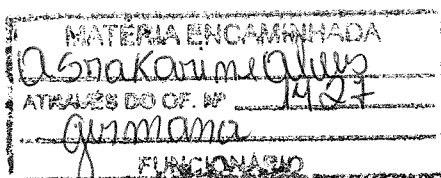 MATÉRIA ENCAMINHADA
a Sra Karine Alves
ATRAVÉS DO OF. Nº 1427
Germana
FUNCIONÁRIO